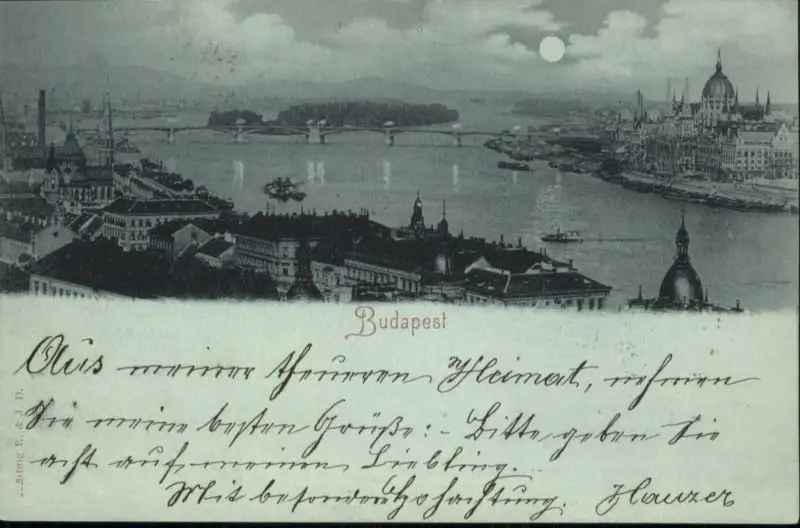 Budapest
Aus meiner theueren Heimat, nehmen
Sie meine besten Grüße:- Bitte geben Sie
acht auf meinen Liebling.
Mit besonderer Hochachtung. Hauzer
R. & J. D.